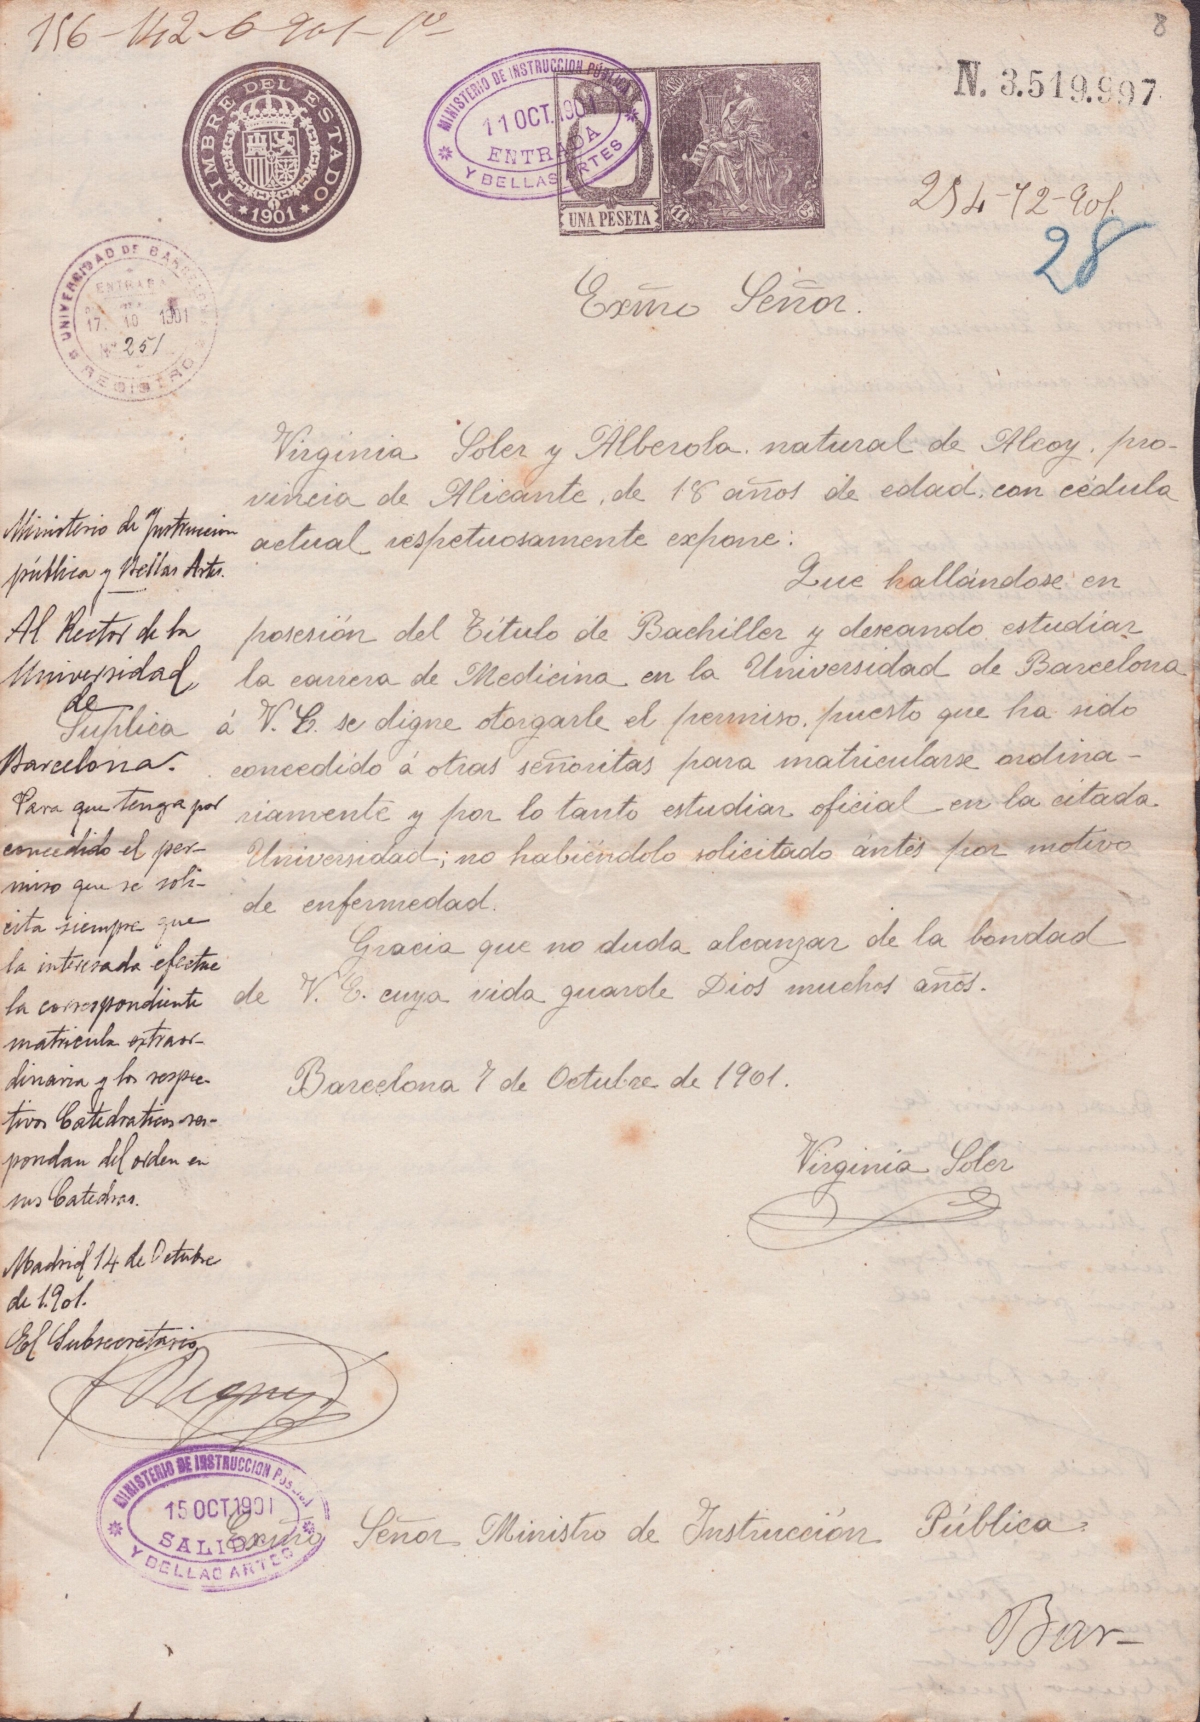 156-142-6-901-
8
TIMBRE DEL ESTADO
1901
MINISTERIO DE INSTRUCCION PÚBLICA
11 OCT. 1901
ENTRADA
Y BELLAS ARTES
UNA PESETA
11
N. 3.519.997
254-72-901.
28
UNIVERSIDAD DE BARCELONA
ENTRADA
17 10 1901
Nº 251
REGISTRO
Exmo Señor.
Virginia Soler y Alberola, natural de Alcoy, pro-
vincia de Alicante, de 18 años de edad, con cédula
actual respetuosamente expone:
Que hallándose en
posesión del Título de Bachiller y deseando estudiar
la carrera de Medicina en la Universidad de Barcelona
Suplica á V. E. se digne otorgarle el permiso, puesto que ha sido
concedido á otras señoritas para matricularse ordina-
riamente y por lo tanto estudiar oficial en la citada
Universidad; no habiéndolo solicitado ántes por motivo
de enfermedad.
Gracia que no duda alcanzar de la bondad
de V. E. cuya vida guarde Dios muchos años.
Barcelona 7 de Octubre de 1901.
Virginia Soler
Ministerio de Instruccion
pública y Bellas Artes.
Al Rector de la
Universidad
de
Barcelona.
Para que tenga por
concedido el per-
miso que se soli-
cita siempre que
la interesada efectue
la correspondiente
matricula extraor-
dinaria y los respec-
tivos Catedraticos res-
pondan del orden en
sus Catedras.
Madrid 14 de Octubre
de 1.901.
El Subsecretario
MINISTERIO DE INSTRUCCION PUBLICA
15 OCT. 1901
SALIDA
Y BELLAS ARTES
Exmo Señor Ministro de Instrucción Pública.
Bar-